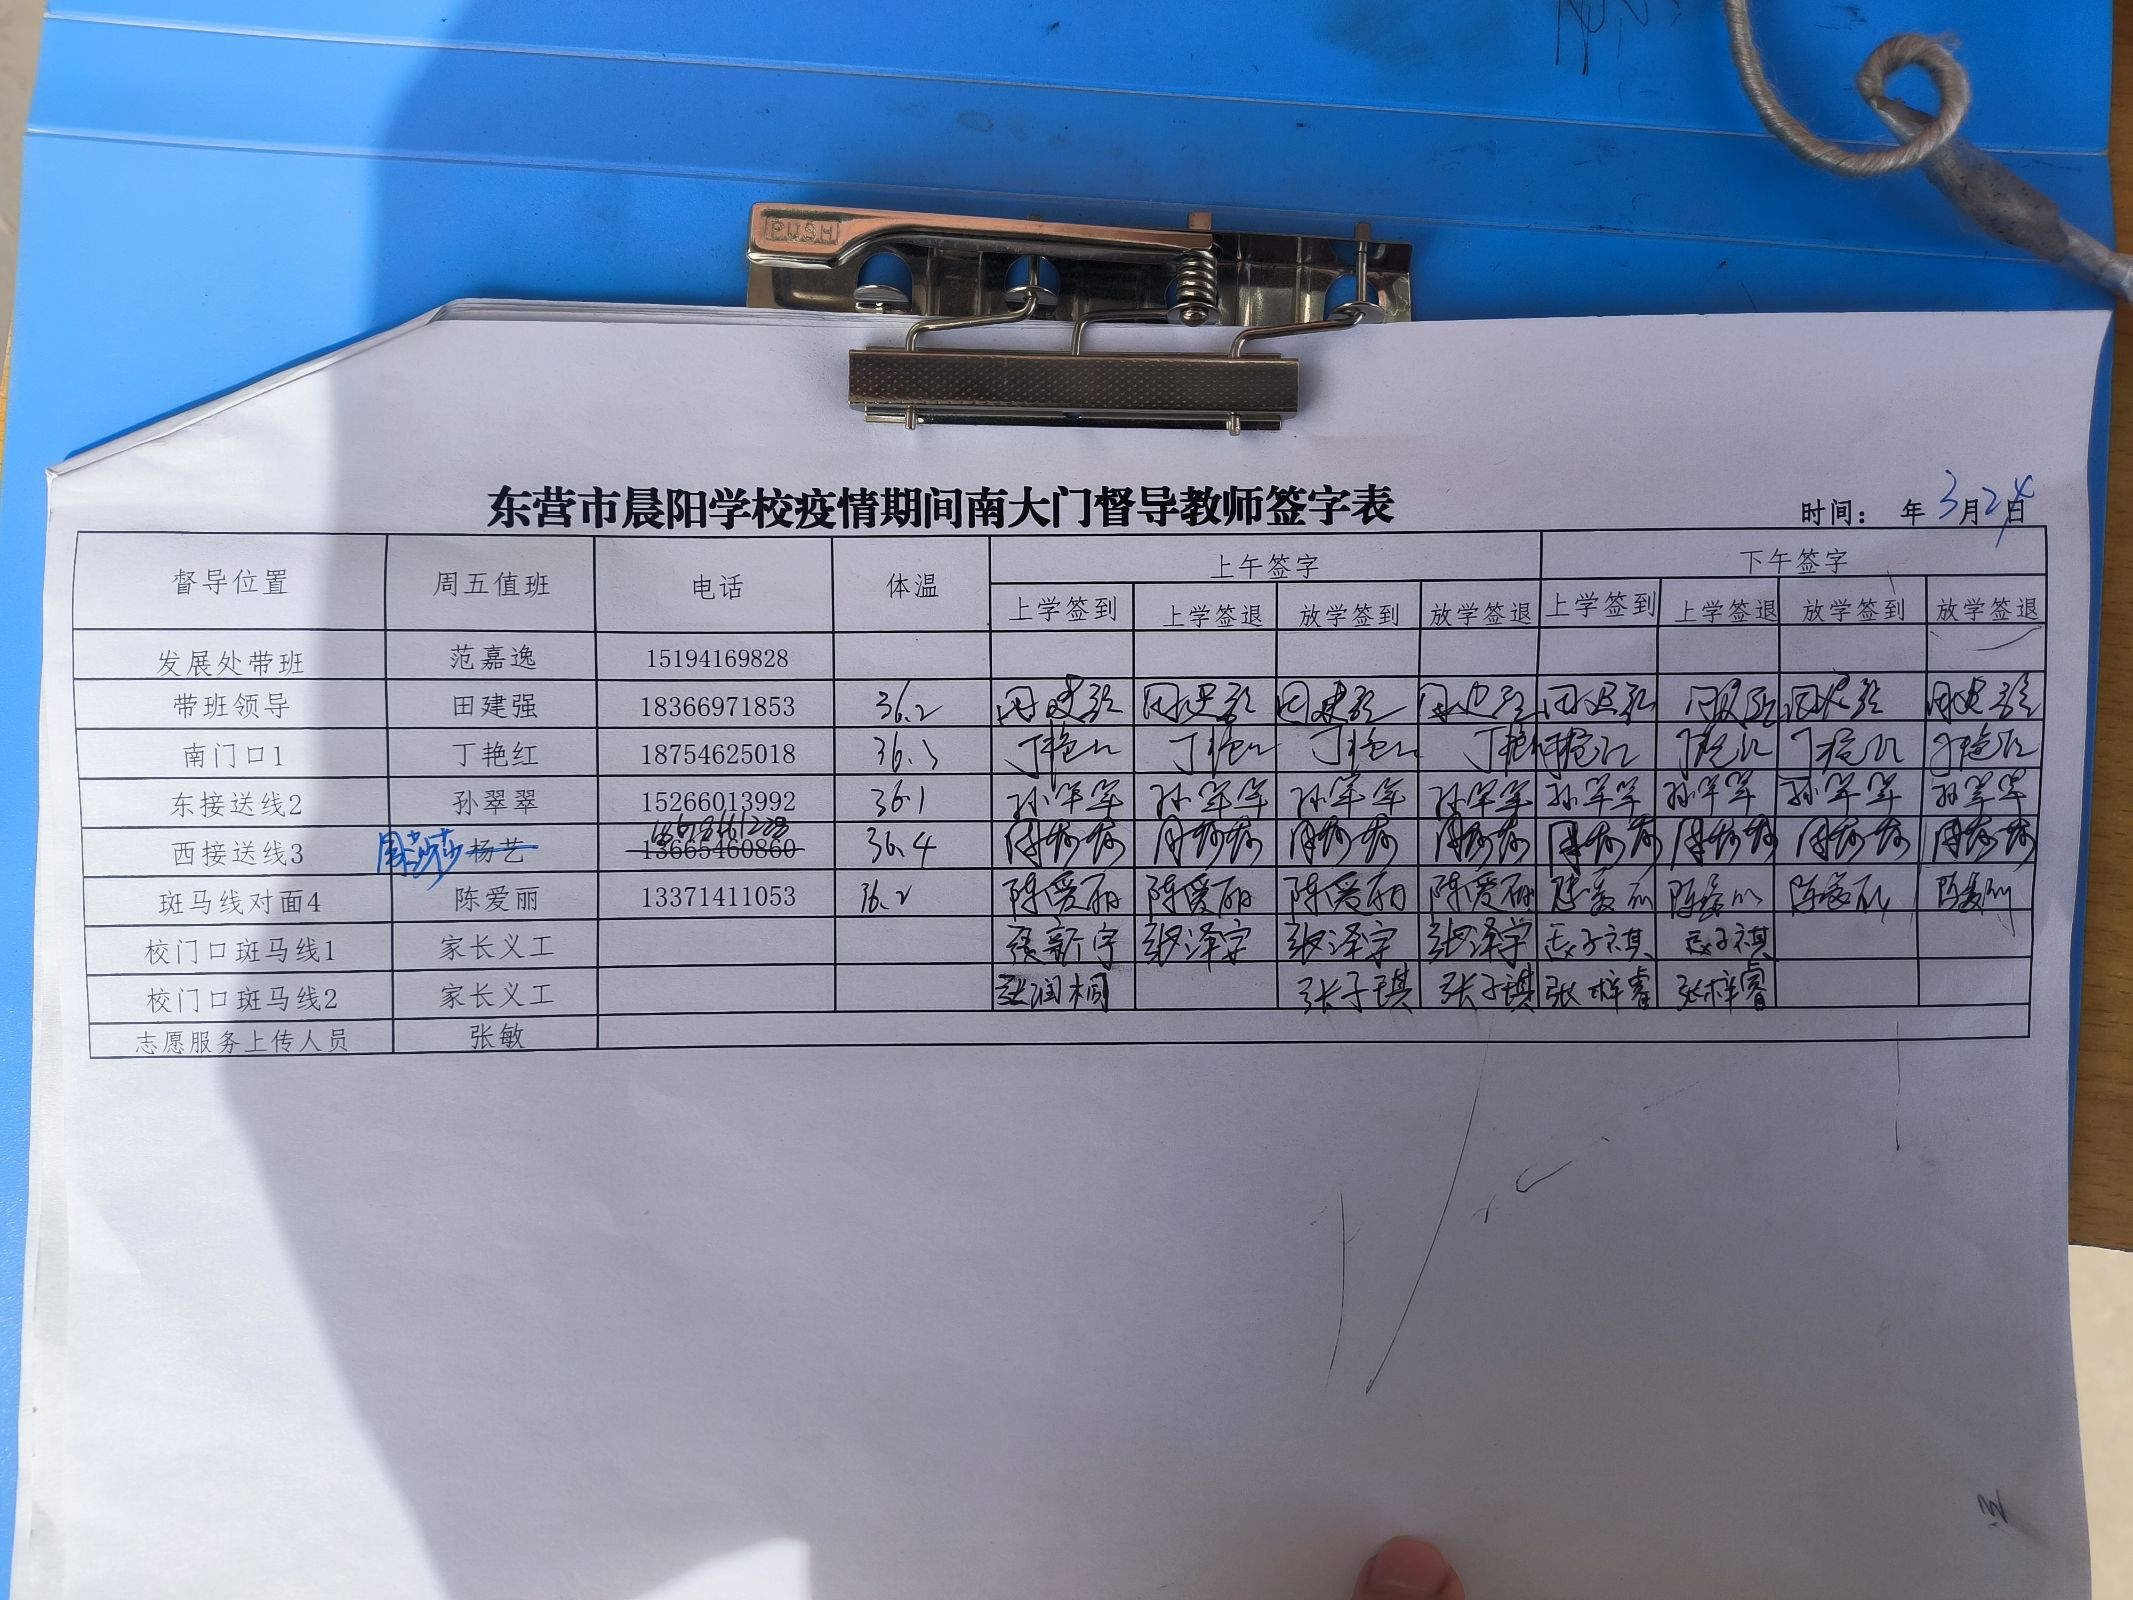 PUSH
东营市晨阳学校疫情期间南大门督导教师签字表
时间: 年 3月24日
督导位置 周五值班 电话 体温 上午签字 下午签字
上学签到 上学签退 放学签到 放学签退 上学签到 上学签退 放学签到 放学签退
发展处带班 范嘉逸 15194169828
带班领导 田建强 18366971853 36.2 田建强 田建强 田建强 田建强 田建强 田建强 田建强 田建强
南门口1 丁艳红 18754625018 36.3 丁艳红 丁艳红 丁艳红 丁艳红 丁艳红 丁艳红 丁艳红 丁艳红
东接送线2 孙翠翠 15266013992 36.1 孙翠翠 孙翠翠 孙翠翠 孙翠翠 孙翠翠 孙翠翠 孙翠翠 孙翠翠
西接送线3 周莎莎 杨艺 13665460860 36.4 周莎莎 周莎莎 周莎莎 周莎莎 周莎莎 周莎莎 周莎莎 周莎莎
斑马线对面4 陈爱丽 13371411053 36.2 陈爱丽 陈爱丽 陈爱丽 陈爱丽 陈爱丽 陈爱丽 陈爱丽 陈爱丽
校门口斑马线1 家长义工 张泽宇 张泽宇 张泽宇
校门口斑马线2 家长义工 张润桐 张子琪 张子琪 张梓睿 张梓睿
志愿服务上传人员 张敏